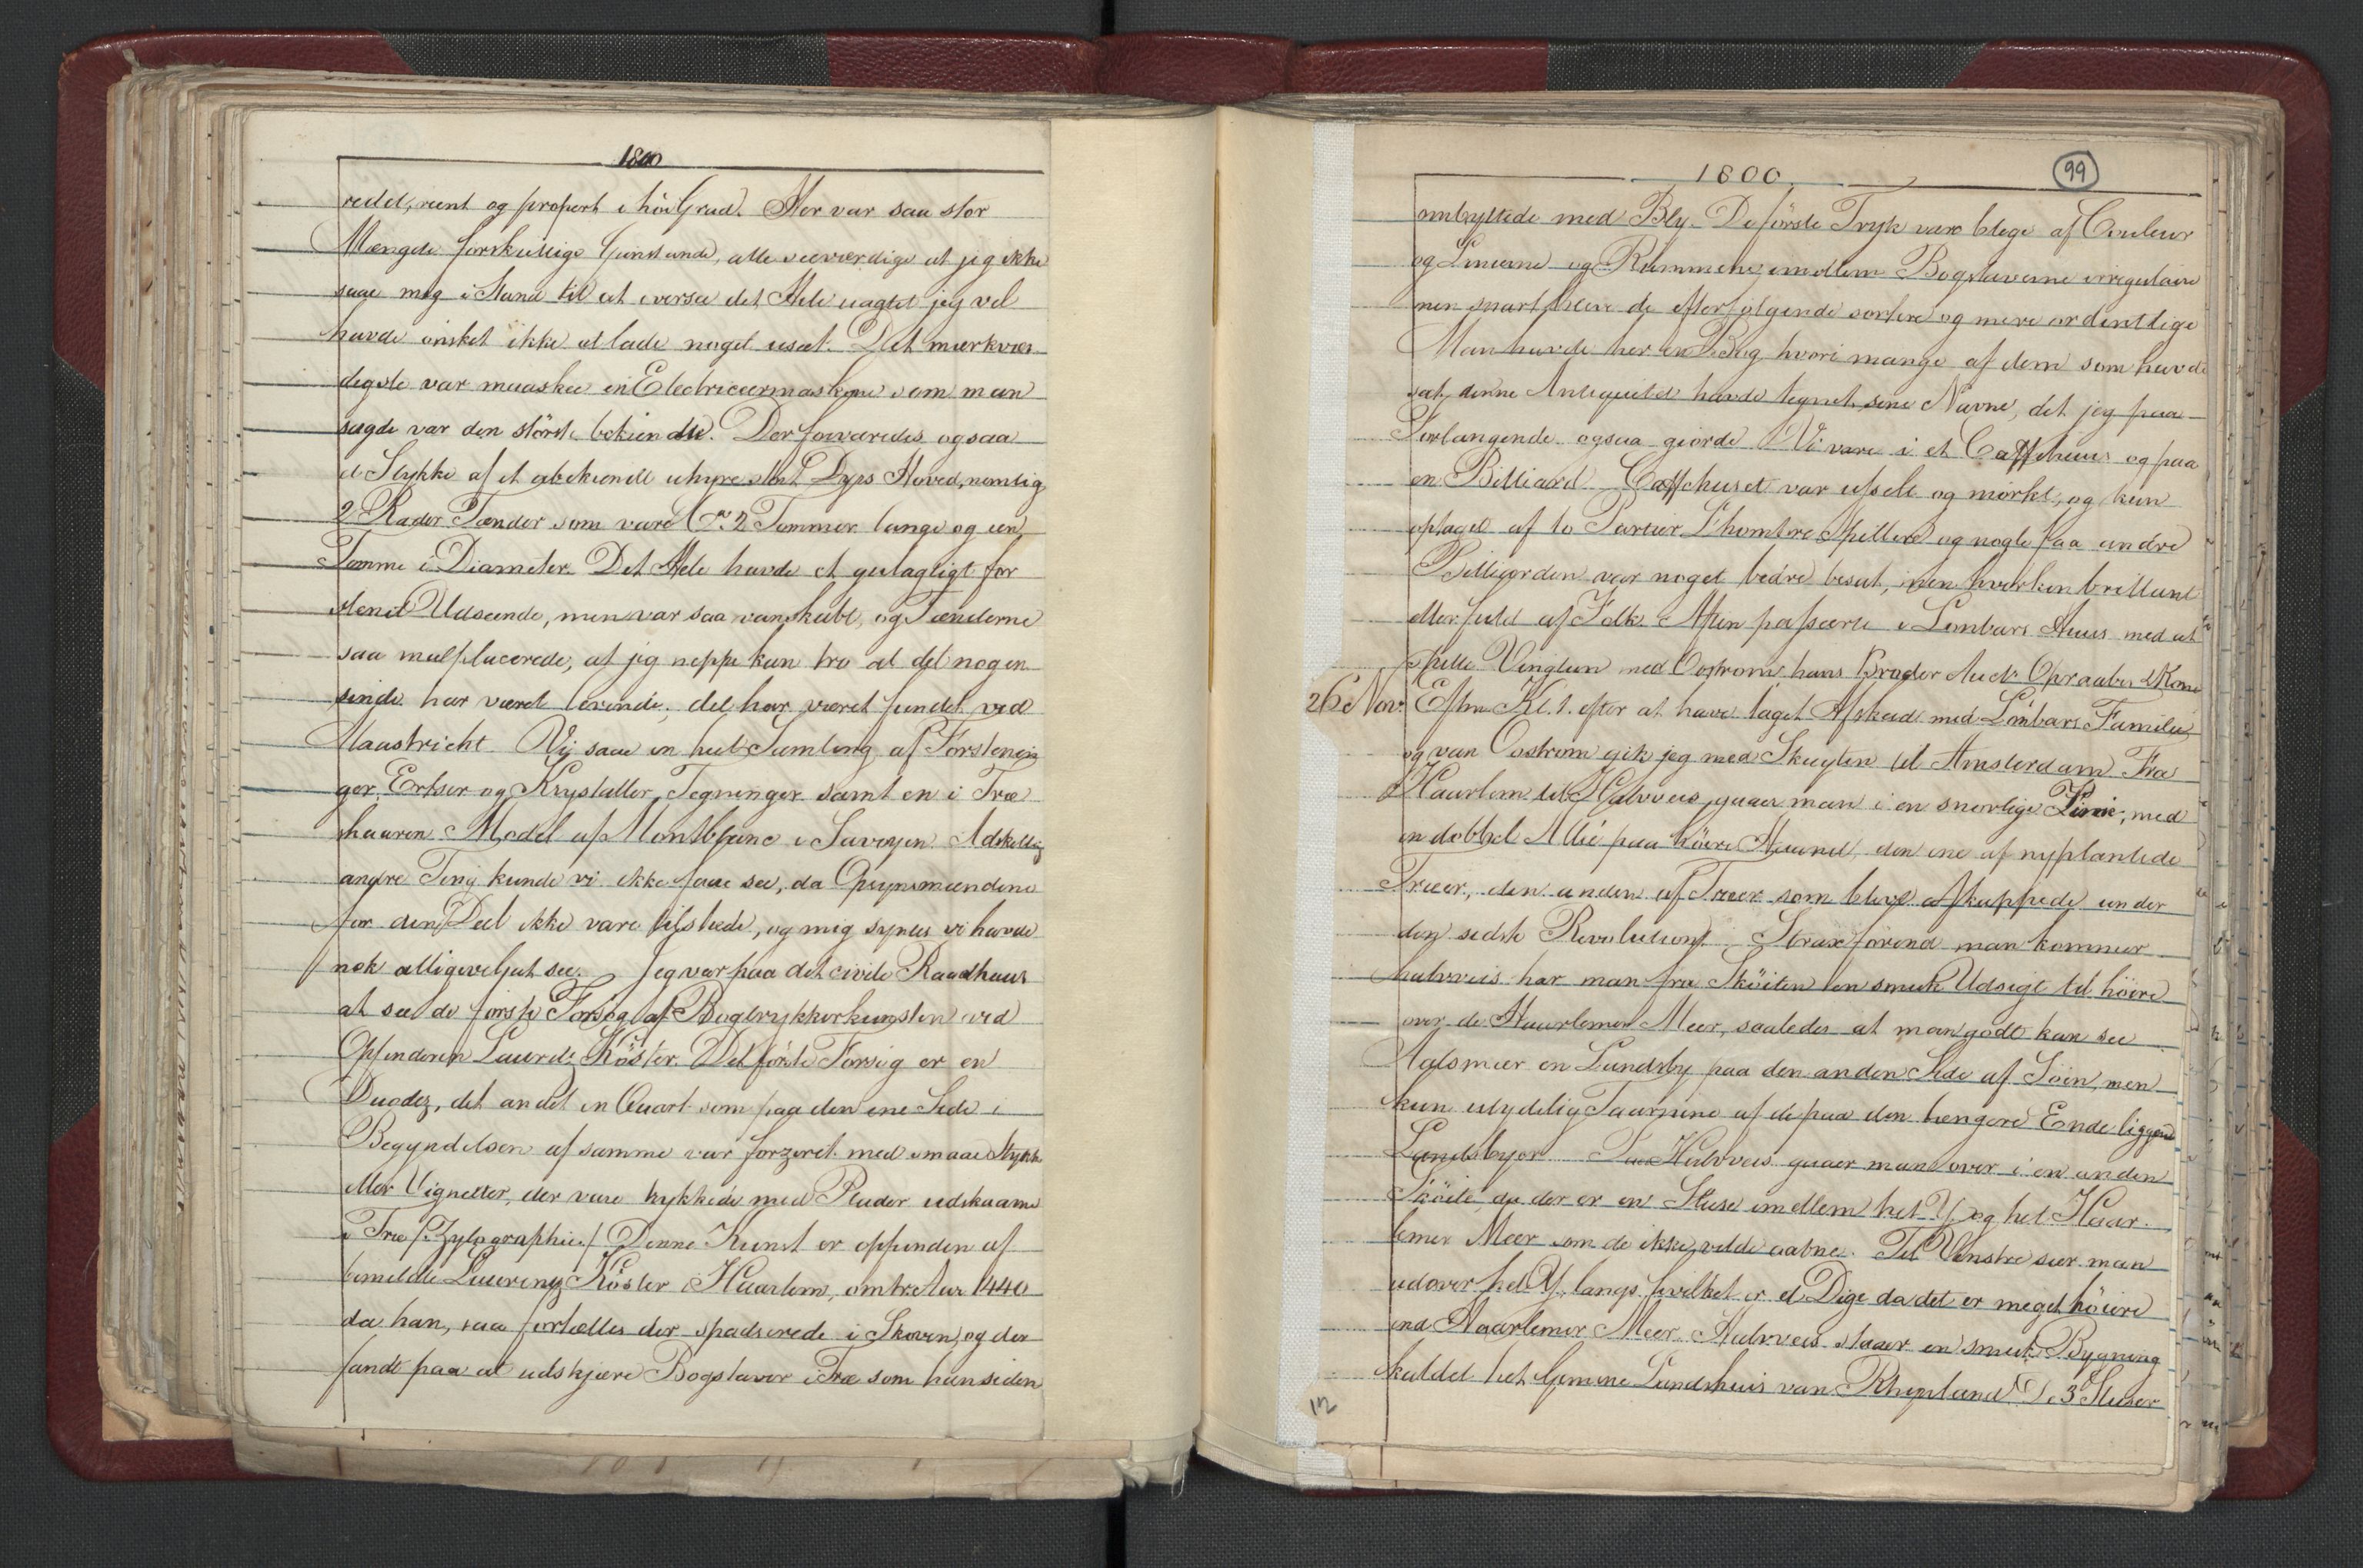 1800
reddet, reent og propert i höi Grad. Her var saa stor
Mængde forskiellige Gienstande, alle seeværdige at jeg ikke
saae mig i Stand til at oversee det Hele uagtet jeg vel
havde ønsket ikke at lade noget useet. Det mærkvær-
digste var maaskee en Electriceermaskine som man
sagde var den störste bekiendte. Der forvaredes ogsaa
et Stykke af et ubekiendt uhyre stort Dyrs Hoved, nemlig
2 Rader Tænder som vare 2 Tommer lange og een
Tomme i Diameter. Det Hele havde et gulagtigt for-
stenet Udseende, men var saa vanskabt, og Tænderne
saa malplacerede, at jeg neppe kan tro at det nogen-
sinde har været levende, det har været fundet ved
Maastricht. Vij saae en heel Samling af Forstenin-
ger, Ertser og Krystaller, Tegninger samt en i Træ
skaaren Model af Montblanc i Savoyen. Adskillig
andre Ting kunde vi ikke faae see, da Opsynsmændene
for den Deel ikke vare tilstæde, og mig syntes vi havde
nok alligevel at see. Jeg var paa det civile Raadhuus
at see de förste Forsög af Bogtrykkerkunsten ved
Opfinderen Laurids Köster. Det förste Forsög er en
Duodez, det andet en Quart som paa den ene Side i
Begyndelsen af samme var forziret med smaae Stykker
eller Vignetter, der vare trykkede med Plader udskaarne
i Træ /: Zylographie :/ Denne Kunst er oppfunden af
bemeldte Laurenz Köster i Haarlem, omtr. Aar 1440
da han, saa fortælles der spadserede i Skoven, og der
fandt paa at udskjære Bogstaver i Træ som han siden
1800.
99
ombyttede med Bly. De förste Tryk vare blege af Couleur
og Linierne og Rummene imellem Bogstaverne irregulaire
men snart bleve de efterfölgende sortere og mere ordentlige
Man havde her en Bog hvori mange af dem som havde
seet denne Antiquitet havde tegnet sine Navne, det jeg paa
Forlangende ogsaa giorde. Vi vare i et Caffehuus og paa
en Billiard. Caffehuset var usselt og mörkt, og kun
optaget af to Partier L'hombre Spillere og nogle faa andre
Billiarden var noget bedre besat, men hverken brillant
eller fuld af Folk. Aften passeerte i Limbars Huus med at
spille Vingtun med Oostrom hans Broder Auct: Opraaber & Kone
26de Novr. Efm. Kl. 1. efter at have taget Afskeed med Limbars Familie
og van Oostrom gik jeg med Skuyten til Amsterdam. Fra
Haarlem til Halvveis gaaer man i en snorlige Linie, med
en dobbel Allee paa höire Haand, den ene af nyplantede
Træer, den anden af Træer som bleve afkappede under
den sidste Revolution. Strax förend man kommer
halvveis har man fra Sköiten en smuk Udsigt til höire
over de Haarlemer Meer, saaledes at man godt kan see
Aalsmeer en Landsby paa den anden Side af Söen, men
kun utydelig Taarnene af de paa den længere Ende liggende
Landsbyer. Paa Halvveis gaaer man over i en anden
Sköite, da der er en Sluse imellem het Y og het Haar-
lemer Meer som de ikke vilde aabne. Til Venstre seer man
udover het Y, langs hvilket er et Dige da det er meget höiere
end Haarlemer Meer. Halvveis staaer en smuk Bygning
kaldet het Gemine Landshuis van Rhynland. De 3 Sluser
12